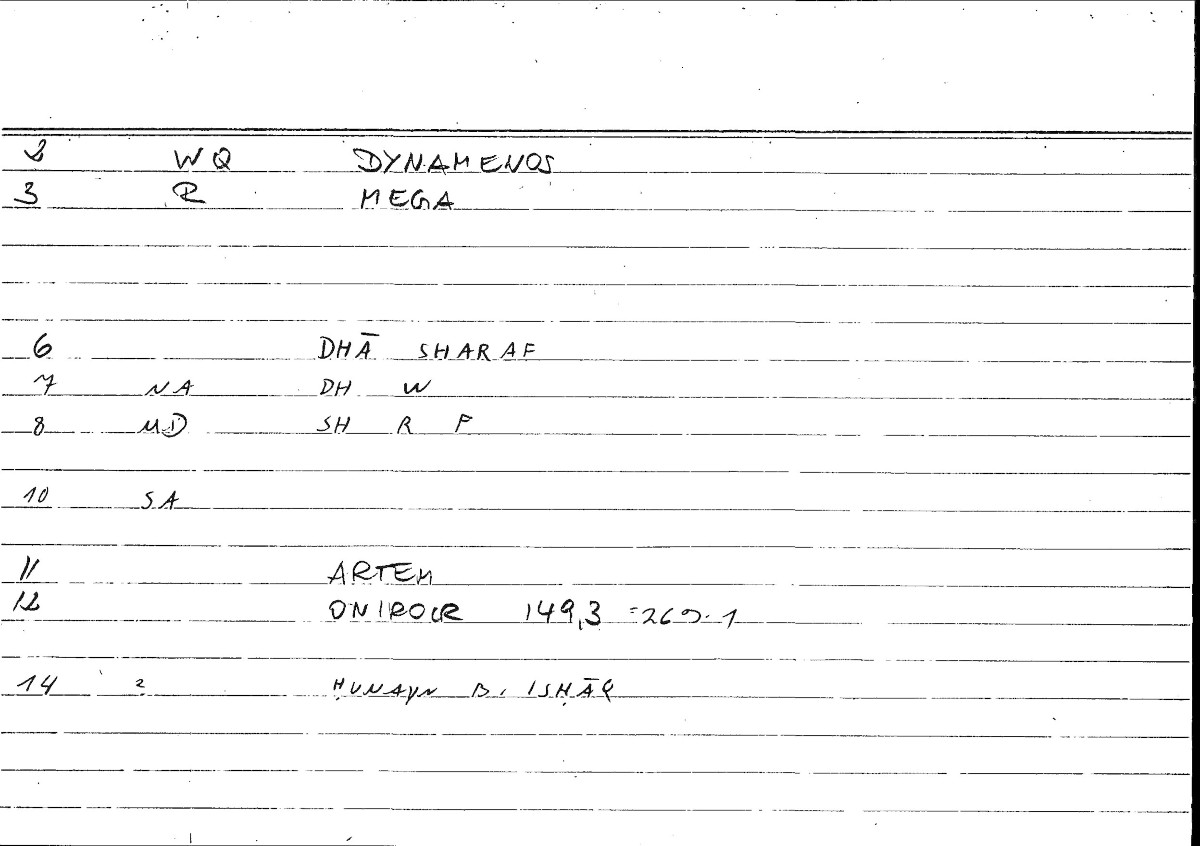 2 WQ DYNAMENOS
3 R MEGA
6 DHĀ SHARAF
7 NA DH W
8 MD SH R F
10 SA
11 ARTEM
12 ONIROCR 149,3 =269.1
14 2 ḤUNAYN B. ISḤĀQ